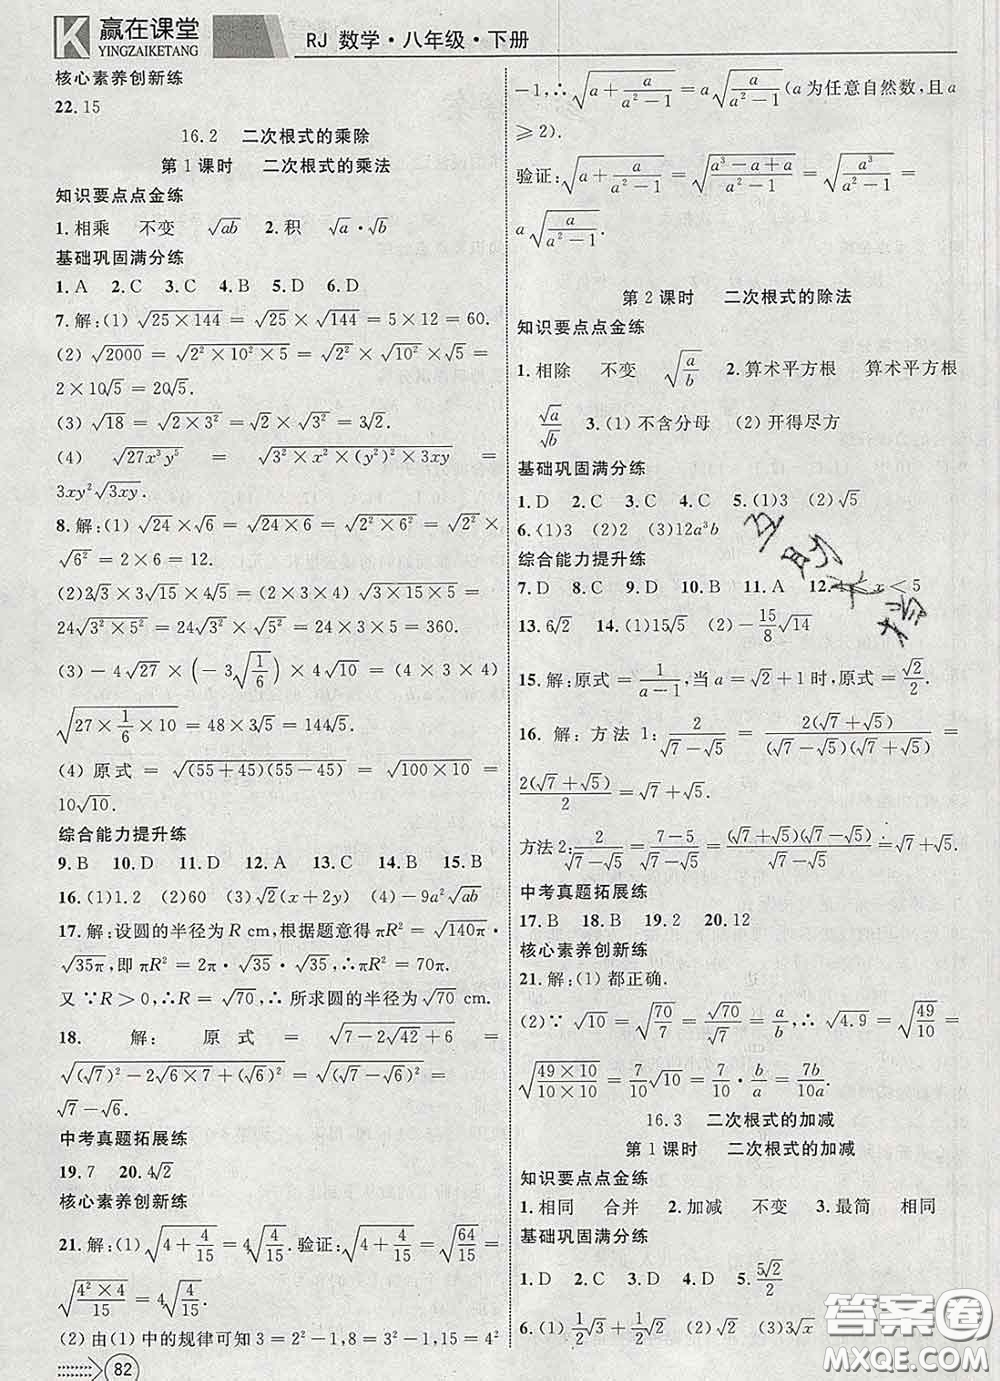 赢在课堂
YINGZAIKETANG
RJ 数学·八年级·下册
核心素养创新练
22. 15
16.2 二次根式的乘除
第1课时 二次根式的乘法
知识要点点金练
1. 相乘 不变 √(ab) 2. 积 √a·√b
基础巩固满分练
1. A 2. C 3. C 4. B 5. D 6. D
7. 解:(1) √(25×144) = √25 × √144 = 5×12 = 60.
(2) √2000 = √(2²×10²×5) = √2² × √10² × √5 =
2×10√5 = 20√5.
(3) √18 = √(2×3²) = √2 × √3² = 3√2.
(4) √(27x³y⁵) = √(3²×x²×(y²)²×3xy) =
3xy²√(3xy).
8. 解:(1) √24×√6 = √(24×6) = √(2²×6²) = √2² ×
√6² = 2×6 = 12.
(2) 2√3×3√15×4√5 = (2×3×4)×√(3×15×5) =
24√(3²×5²) = 24√3²×√5² = 24×3×5 = 360.
(3) −4√27 × (−3√(1/6)) × √10 = (4×3×4)
√(27×1/6×10) = 48×3√5 = 144√5.
(4) 原式 = √((55+45)(55−45)) = √(100×10) =
10√10.
综合能力提升练
9. B 10. D 11. D 12. A 13. C 14. B 15. B
16. (1)1.2 (2)60 (3)√2(x+2y) (4)−9a²√(ab)
17. 解:设圆的半径为R cm,根据题意得πR² = √(140π)·
√(35π),即πR² = 2π·√35·√35,∴πR² = 70π.
又∵R>0,∴R=√70,∴所求圆的半径为√70 cm.
18. 解: 原式 = √(7−2√42+6) =
√((√7)²−2√(6×7)+(√6)²) = √((√7−√6)²) =
√7−√6.
中考真题拓展练
19. 7 20. 4√2
核心素养创新练
21. 解:(1) √(4+4/15) = 4√(4/15). 验证:√(4+4/15) = √(64/15) =
√(4²×4/15) = 4√(4/15).
(2) 由(1)中的规律可知3=2²−1,8=3²−1,15=4²
82
−1,∴√(a+a/(a²−1)) = a√(a/(a²−1))(a为任意自然数,且a
≥2).
验证:√(a+a/(a²−1)) = √((a³−a+a)/(a²−1)) = √(a³/(a²−1)) =
a√(a/(a²−1)).
第2课时 二次根式的除法
知识要点点金练
1. 相除 不变 √(a/b) 2. 算术平方根 算术平方根
√a/√b 3. (1) 不含分母 (2) 开得尽方
基础巩固满分练
1. D 2. C 3. C 4. C 5. (1)3 (2)√5
6. (1)3 (2)2 (3)12a³b
综合能力提升练
7. D 8. C 9. D 10. B 11. A 12. x<5
13. 6√2 14. (1)15√5 (2)−15/8√14
15. 解:原式=1/(a−1),当a=√2+1时,原式=√2/2.
16. 解:方法1:2/(√7−√5) = 2(√7+√5)/((√7−√5)(√7+√5)) =
2(√7+√5)/2 = √7+√5.
方法2:2/(√7−√5) = (7−5)/(√7−√5) = (√7+√5)(√7−√5)/(√7−√5) = √7+√5.
中考真题拓展练
17. B 18. B 19. 2 20. 12
核心素养创新练
21. 解:(1) 都正确.
(2)∵√10 = √(70/7) = √70/√7 = a/b,∴√4.9 = √(49/10) =
√(49×10/(10×10)) = 7/10√10 = 7/10·b/a = 7b/10a.
16.3 二次根式的加减
第1课时 二次根式的加减
知识要点点金练
1. 相同 合并 2. 加减 不变 3. 最简 相同
基础巩固满分练
1. D 2. C 3. A 4. D 5. 5√2/2
6. (1) 1/2√3+1/4√2
答案圈
MXQE.COM